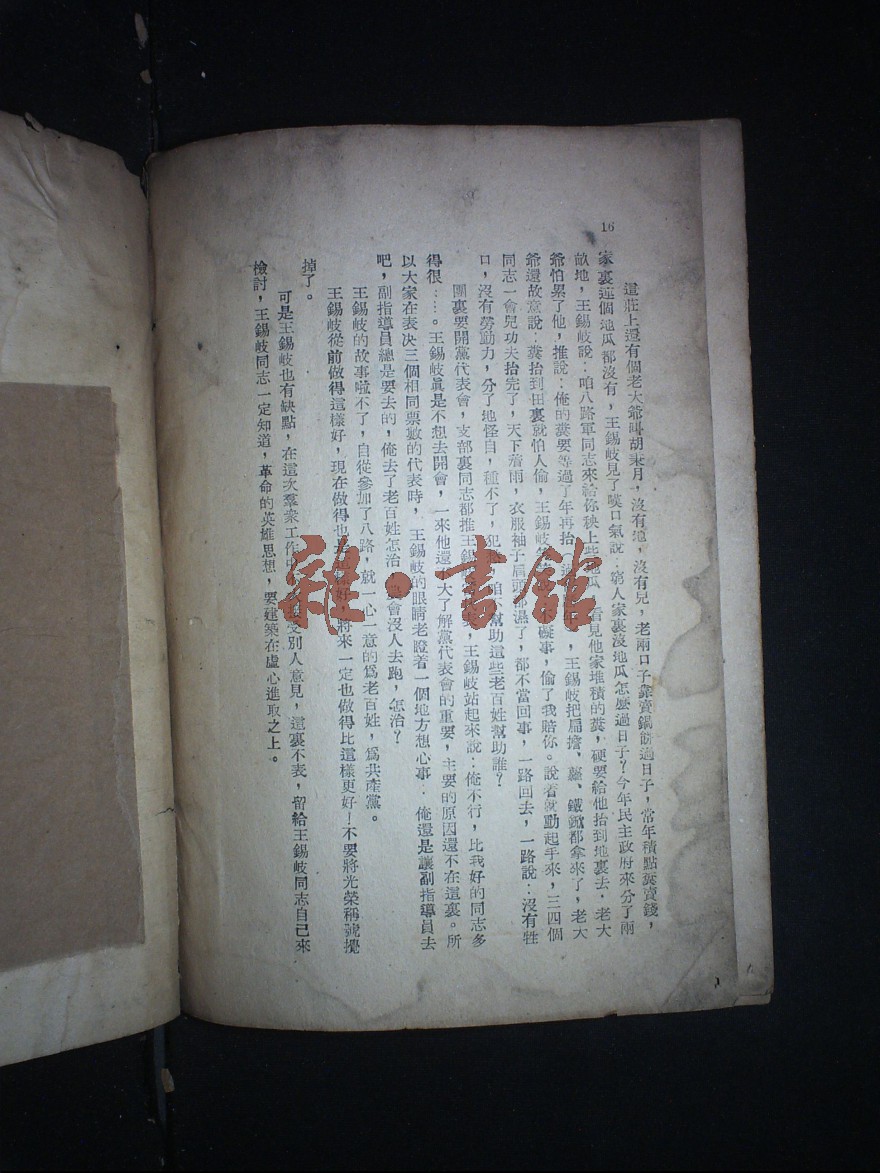 16
這莊上還有個老大爺叫胡來月，沒有地，沒有兒，老兩口子靠賣鍋餅過日子，常年積點糞賣錢，
家裏連個地瓜都沒有，王錫岐見了嘆口氣說：窮人家裏沒地瓜怎麼過日子？今年民主政府來分了兩
畝地，王錫岐說：咱八路軍同志來給你秧上些地瓜，看見他家堆積的糞，硬要給他抬到地裏去，老大
爺怕累了他，推說：俺的糞要等過了年再抬，王錫岐把扁擔、籮、鐵鍁都拿來了，老大
爺還故意說：糞抬到田裏就怕人偷，王錫岐 礙事，偷了我賠你。說着就動起手來，三四個
同志一會兒功夫抬完了，天下着雨，衣服袖子肩頭都濕了，都不當回事，一路回去，一路說：沒有牲
口，沒有勞動力，分了地怪自，種不了，犯 咱不幫助這些老百姓幫助誰？
團裏要開黨代表會，支部裏同志都推王錫 ，王錫岐站起來說：俺不行，比我好的同志多
得很……。王錫岐眞是不想去開會，一來他還 大了解黨代表會的重要，主要的原因還不在這裏。所
以大家在表决三個相同票數的代表時，王錫岐的眼睛老瞪着一個地方想心事：俺還是讓副指導員去
吧，副指導員總是要去的，俺去了老百姓怎治，農會沒人去跑，怎治？
王錫岐的故事啦不了，自從參加了八路，就一心一意的爲老百姓，爲共產黨。
王錫岐從前做得這樣好，現在做得也是這樣好，將來一定也做得比這樣更好！不要將光榮稱號攪
掉了。
可是王錫岐也有缺點，在這次羣衆工作中 接受別人意見，這裏不表，留給王錫岐同志自己來
檢討，王錫岐同志一定知道，革命的英雄思想，要建築在虛心進取之上。
雜·書館